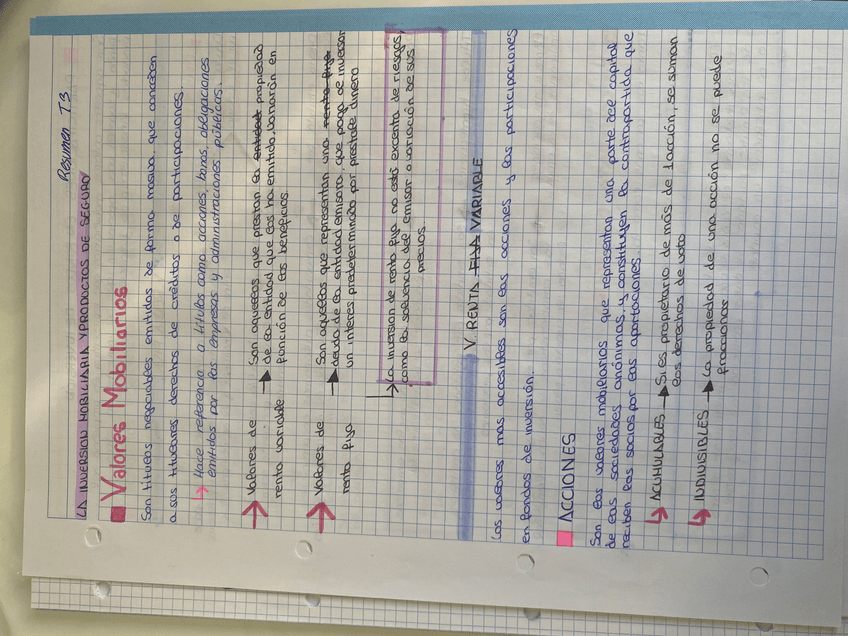 Resumen T3
LA INVERSION MOBILIARIA Y PRODUCTOS DE SEGURO
Valores Mobiliarios
Son titulos negociables emitidos de forma masiva que conceden
a sus titulares derechos de créditos o de participaciones.
Hace referencia a titulos como acciones, bonos, obligaciones
emitidos por las empresas y administraciones públicas.
Valores de renta variable → Son aquellos que prestan la entidad propiedad
de la entidad que los ha emitido, variarán en
función de los beneficios
Valores de renta fija → Son aquellos que representan una renta fija
deuda de la entidad emisora, que paga al inversor
un interes predeterminado por prestarle dinero
La inversion de renta fija no está excenta de riesgos,
como la solvencia del emisor o variación de sus
precios
V RENTA FIJA VARIABLE
Los valores mas accesibles son las acciones y las participaciones
en fondos de inversión.
ACCIONES
Son los valores mobiliarios que representan una parte del capital
de las sociedades anónimas, y constituyen la contrapartida que
reciben los socios por las aportaciones
ACUMULABLES → Si es propietario de más de 1 acción, se suman
los derechos de voto
INDIVISIBLES → La propiedad de una acción no se puede
fraccionar